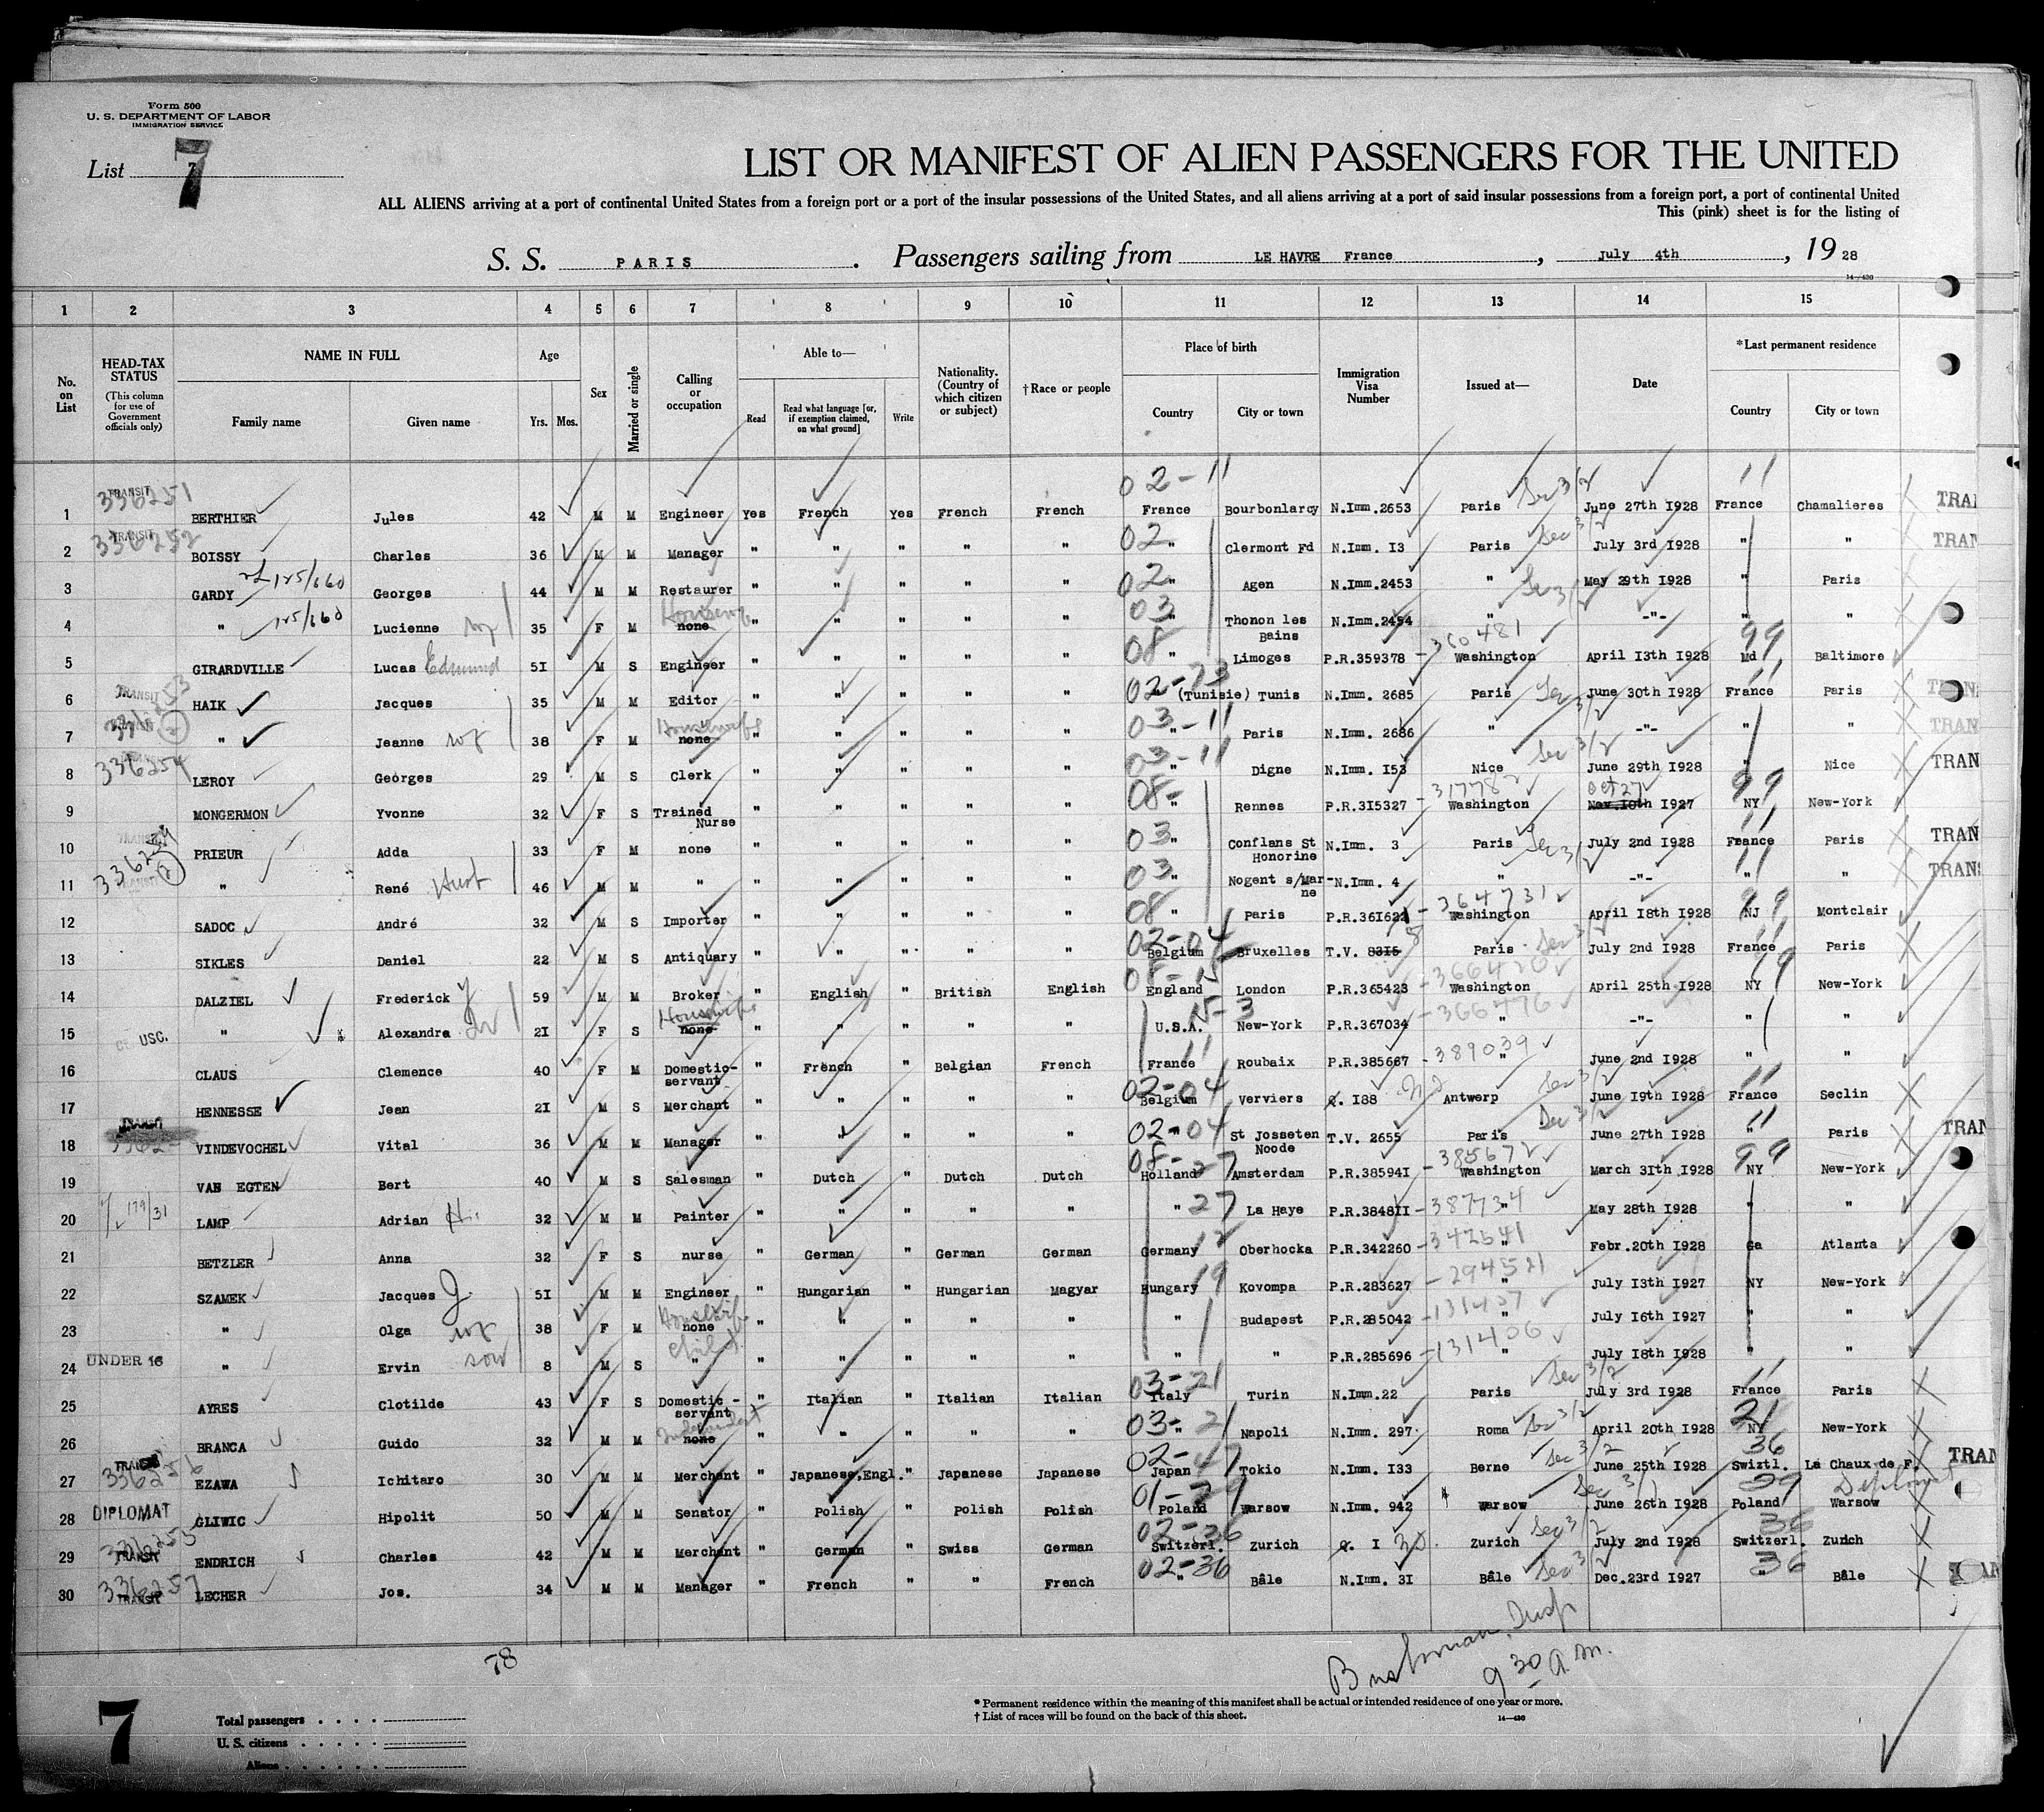 Form 500
U. S. DEPARTMENT OF LABOR
IMMIGRATION SERVICE
List 7
7
LIST OR MANIFEST OF ALIEN PASSENGERS FOR THE UNITED
ALL ALIENS arriving at a port of continental United States from a foreign port or a port of the insular possessions of the United States, and all aliens arriving at a port of said insular possessions from a foreign port, a port of continental United
This (pink) sheet is for the listing of
S. S. PARIS. Passengers sailing from LE HAVRE France, July 4th, 1928
14-430
1 2 3 4 5 6 7 8 9 10 11 12 13 14 15
No. on List
HEAD-TAX STATUS (This column for use of Government officials only)
NAME IN FULL Family name Given name
Age Yrs. Mos.
Sex
Married or single
Calling or occupation
Able to— Read Read what language [or, if exemption claimed, on what ground] Write
Nationality. (Country of which citizen or subject)
†Race or people
Place of birth Country City or town
Immigration Visa Number
Issued at—
Date
*Last permanent residence Country City or town
1 TRANSIT 336251 BERTHIER Jules 42 M M Engineer Yes French Yes French French 02-11 France Bourbonlarcy N.Imm.2653 Paris Sec 3/2 June 27th 1928 11 France Chamalieres TRAN
2 TRANSIT 336252 BOISSY Charles 36 M M Manager " " " " " 02 " Clermont Fd N.Imm. I3 Paris Sec 3/2 July 3rd 1928 " " TRAN
3 GARDY 125/660 Georges 44 M M Restaurer " " " " " 02 " Agen N.Imm.2453 " Sec 3/2 May 29th 1928 " Paris
4 " 125/660 Lucienne wf 35 F M none Housewf " " " " " 03 " Thonon les Bains N.Imm.2454 " -"- " "
5 GIRARDVILLE Lucas Edmund 5I M S Engineer " " " " " 08 " Limoges P.R.359378 -360481 Washington April I3th I928 99 Md Baltimore
6 TRANSIT 336253 HAIK Jacques 35 M M Editor " " " " " 02-73 (Tunisie) Tunis N.Imm. 2685 Paris Sec 3/2 June 30th I928 11 France Paris TRAN
7 (2) " Jeanne wf 38 F M none Housewife " " " " " 03-11 " Paris N.Imm. 2686 " -"- " " TRAN
8 336254 LEROY Georges 29 M S Clerk " " " " " 03-11 " Digne N.Imm. I53 Nice Sec 3/2 June 29th I928 " Nice TRAN
9 MONGERMON Yvonne 32 F S Trained Nurse " " " " " 08- " Rennes P.R.3I5327 -317782 Washington Oct 27 Nov.I0th I927 99 NY New-York
10 TRANSIT PRIEUR Adda 33 F M none " " " " " 03 " Conflans St Honorine N.Imm. 3 Paris Sec 3/2 July 2nd I928 11 France Paris TRAN
11 (2) " René Husb 46 M M " " " " " " 03 " Nogent s/Marne N.Imm. 4 " -"- 11 " " TRANS
12 SADOC André 32 M S Importer " " " " " 08 " Paris P.R.36I622 -364731 Washington April I8th I928 99 NJ Montclair
13 SIKLES Daniel 22 M S Antiquary " " " " " 02-04 Belgium Bruxelles T.V. 83I5 Paris Sec 3/2 July 2nd I928 11 France Paris
14 DALZIEL Frederick Y 59 M M Broker " English " British English 08-15 England London P.R.365423 -366420 Washington April 25th I928 99 NY New-York
15 USC. " Alexandra 2I F S none Housewife " " " " " N-3 U.S.A. New-York P.R.367034 -366476 " -"- " "
16 CLAUS Clemence 40 F M Domestic-servant " French " Belgian French 11 France Roubaix P.R.385667 -389039 " June 2nd I928 " "
17 HENNESSE Jean 2I M S Merchant " " " " " 02-04 Belgium Verviers Q. I88 Antwerp Sec 3/2 June I9th I928 11 France Seclin
18 VINDEVOCHEL Vital 36 M M Manager " " " " " 02-04 " St Josseten Noode T.V. 2655 Paris Sec 3/2 June 27th I928 11 " Paris TRAN
19 VAN EGTEN Bert 40 M S Salesman " Dutch " Dutch Dutch 08-27 Holland Amsterdam P.R.38594I -385672 Washington March 3Ith I928 99 NY New-York
20 179/31 LAMP Adrian H. 32 M M Painter " " " " " " 27 La Haye P.R.3848II -387734 " May 28th I928 " "
21 BETZLER Anna 32 F S nurse " German " German German 12 Germany Oberhocka P.R.342260 -342541 " Febr.20th I928 Ga Atlanta
22 SZAMEK Jacques J. 5I M M Engineer " Hungarian " Hungarian Magyar Hungary 19 Kovompa P.R.283627 -294521 " July I3th I927 NY New-York
23 " Olga wf 38 F M none Housewife " " " " " " Budapest P.R.285042 -131407 " July I6th I927 " "
24 UNDER 16 " Ervin son 8 M S " child " " " " " " " P.R.285696 -131406 " July I8th I928 " "
25 AYRES Clotilde 43 F S Domestic-servant " Italian " Italian Italian 03-21 Italy Turin N.Imm.22 Paris Sec 3/2 July 3rd I928 11 France Paris
26 BRANCA Guido 32 M M none Independent " " " " " 03-21 " Napoli N.Imm. 297 Roma Sec 3/2 April 20th I928 21 NY New-York
27 TRANSIT 336256 EZAWA Ichitaro 30 M M Merchant " Japanese.Engl. " Japanese Japanese 02-47 Japan Tokio N.Imm. I33 Berne Sec 3/2 June 25th I928 36 Swiztl. La Chaux de F. TRAN
28 DIPLOMAT GLIWIC Hipolit 50 M M Senator " Polish " Polish Polish 01-29 Poland Warsow N.Imm. 942 Warsow Sec 3/1 June 26th I928 29 Poland Warsow Diplomat
29 336255 TRANSIT ENDRICH Charles 42 M M Merchant " German " Swiss German 02-36 Switzerl. Zurich Q. I 30. Zurich Sec 3/2 July 2nd I928 36 Switzerl. Zurich
30 336257 TRANSIT LECHER Jos. 34 M M Manager " French " " French 02-36 " Bâle N.Imm. 3I Bâle Sec 3/2 Dec.23rd I927 36 " Bâle
78
9 30 a.m.
* Permanent residence within the meaning of this manifest shall be actual or intended residence of one year or more.
† List of races will be found on the back of this sheet.
14-430
7
Total passengers . . . .
U. S. citizens . . . . .
Aliens . . . . .